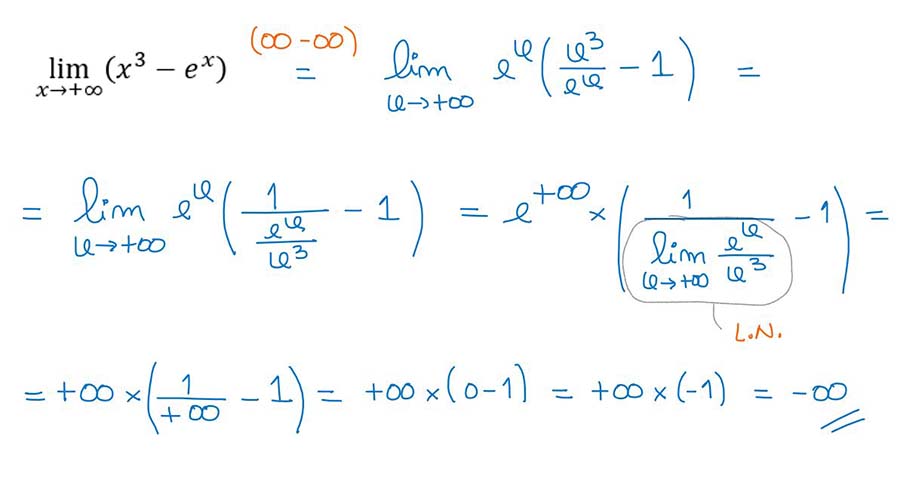 lim x→+∞ (x³ − eˣ) (∞−∞) = lim x→+∞ eˣ (x³/eˣ − 1) =
= lim x→+∞ eˣ (1/(eˣ/x³) − 1) = e^+∞ × (1/(lim x→+∞ eˣ/x³) − 1) =
L.N.
= +∞ × (1/+∞ − 1) = +∞ × (0−1) = +∞ × (−1) = −∞